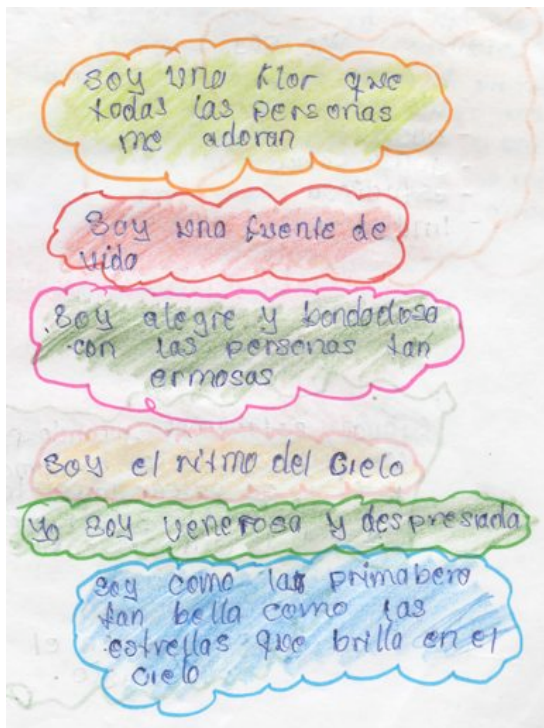 soy una flor que
todas las personas
me adoran
soy una fuente de
vida
soy alegre y bondadosa
con las personas tan
ermosas
soy el ritmo del cielo
yo soy venerosa y despresiada
soy como la primabera
tan bella como las
estrellas que brilla en el
cielo